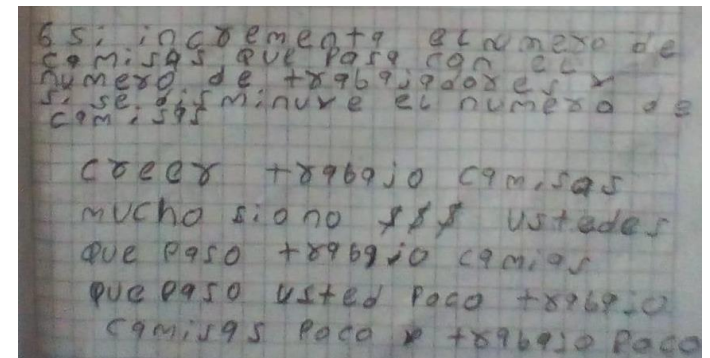 6 si incrementa el numero de
camisas que pasa con el
numero de trabajadores y
si se disminuye el numero de
camisas
creer trabajo camisas
mucho si o no $$$ ustedes
que paso trabajo camias
que paso usted poco trabajo
camisas poco trabajo poco